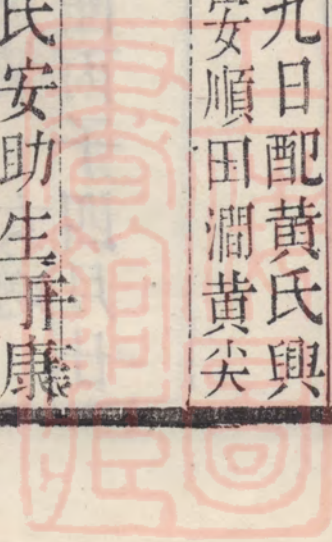 九日配黄氏興
安順田澗黄尖
氏安助生
康